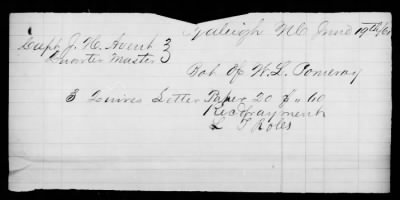 Raleigh NC June 19th/61
Capt J. H. Avent
Quarter Master
Bot of W. L. Pomeroy
3 Quires Letter Paper 20 $ " 60
Recd Payment
L T Roles